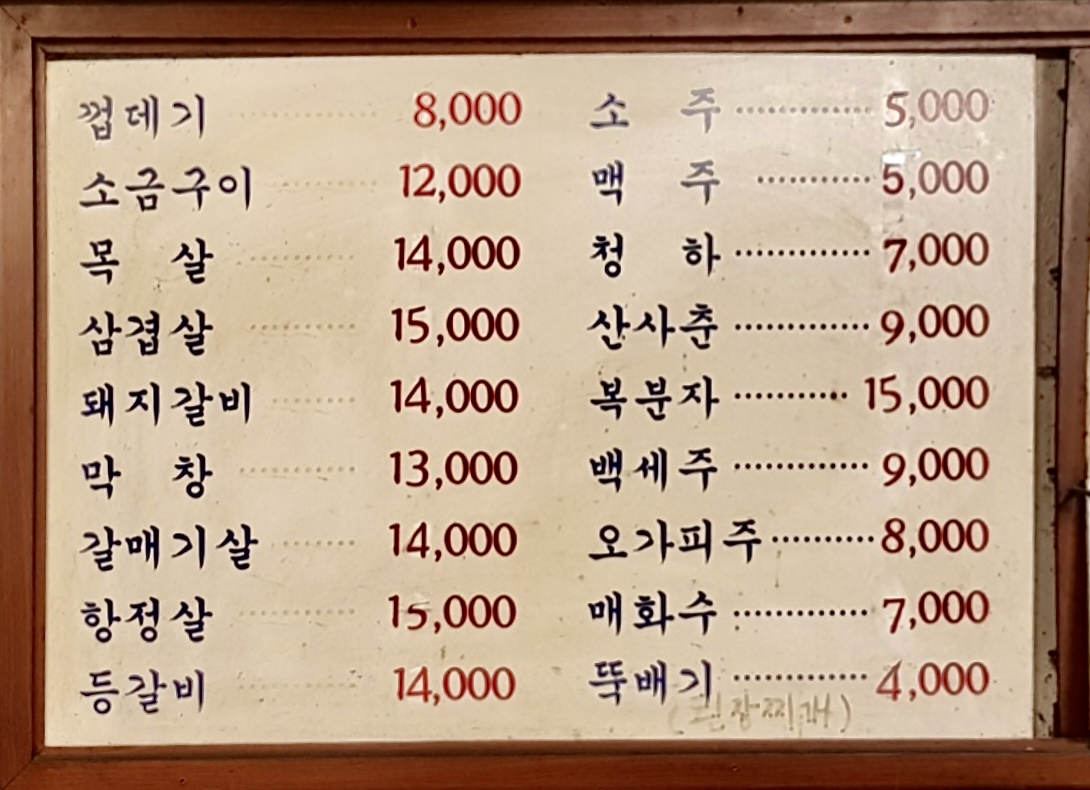 껍데기 ············ 8,000
소금구이 ········· 12,000
목 살 ·········· 14,000
삼겹살 ·········· 15,000
돼지갈비 ········ 14,000
막 창 ··········· 13,000
갈매기살 ········ 14,000
항정살 ··········· 15,000
등갈비 ··········· 14,000
소 주 ············ 5,000
맥 주 ·········· 5,000
청 하 ············ 7,000
산사춘 ············ 9,000
복분자 ·········· 15,000
백세주 ············ 9,000
오가피주 ········· 8,000
매화수 ············ 7,000
뚝배기 ············ 4,000
(된장찌개)